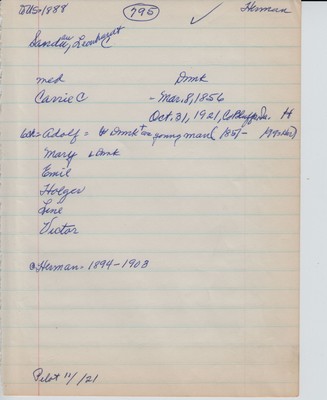 to US-1888 795 ✓ Herman
Sandau, Leonhardt
med Dmk
Carrie C - Mar. 8, 1856
Oct. 31, 1921, C Bluffs, Ia. H
Adolf = b Dmk + as young man (1851-
Mary b Dmk
Emil
Holger
Line
Victor
Herman = 1894-1903
Pilot 11/ /21